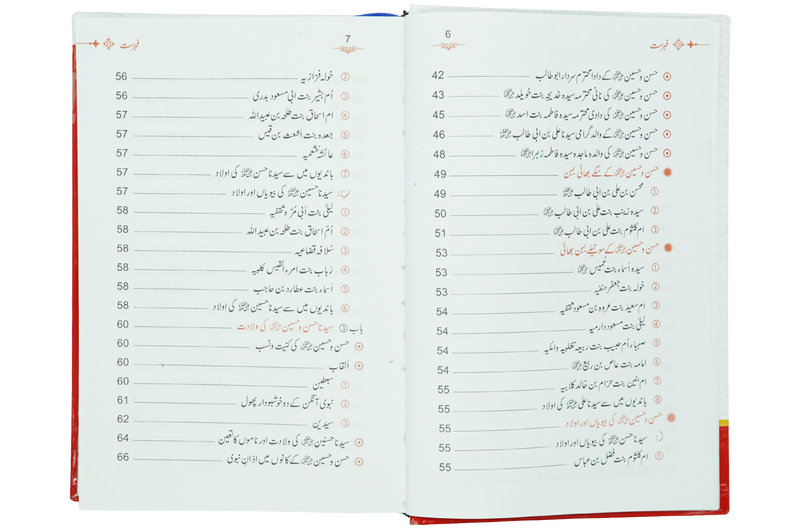 6
فہرست
حسن و حسین رضی اللہ عنہما کے دادا محترم سردار ابوطالب 42
حسن و حسین رضی اللہ عنہما کی نانی محترمہ سیدہ خدیجہ بنت خویلد 43
حسن و حسین رضی اللہ عنہما کی دادی محترمہ سیدہ فاطمہ بنت اسد 45
حسن و حسین رضی اللہ عنہما کے والد گرامی سیدنا علی بن ابی طالب 46
حسن و حسین رضی اللہ عنہما کی والدہ ماجدہ سیدہ فاطمہ زہرا 48
حسن و حسین رضی اللہ عنہما کے سگے بھائی بہن 49
① محسن بن علی بن ابی طالب 49
② سیدہ زینب بنت علی بن ابی طالب 50
③ ام کلثوم بنت علی بن ابی طالب 51
حسن و حسین رضی اللہ عنہما کے سوتیلے بہن بھائی 53
① سیدہ اسماء بنت عمیس 53
② خولہ بنت جعفر حنفیہ 53
③ ام سعید بنت عروہ بن مسعود ثقفیہ 54
④ لیلیٰ بنت مسعود دارمیہ 54
⑤ صہباء ام حبیب بنت ربیعہ تغلبیہ 54
⑥ امامہ بنت عاص بن ربیع 54
⑦ ام بنین بنت حزام بن خالد کلابیہ 55
⑧ باندیوں میں سے سیدنا علی کی اولاد 55
حسن و حسین رضی اللہ عنہما کی بیویاں اور اولاد
سیدنا حسن کی بیویاں اور اولاد 55
① ام کلثوم بنت فضل بن عباس 55
7
فہرست
② خولہ فزاریہ 56
③ اُم بشیر بنت ابی مسعود بدری 56
④ ام اسحاق بنت طلحہ بن عبیداللہ 57
⑤ جعدہ بنت اشعث بن قیس 57
⑥ عائشہ خثعمیہ 57
⑦ باندیوں میں سے سیدنا حسن کی اولاد 57
سیدنا حسین کی بیویاں اور اولاد 57
① لیلیٰ بنت اَبی مُرّہ ثقفیہ 58
② اُم اسحاق بنت طلحہ بن عبیداللہ 58
③ سُلافہ قضاعیہ 58
④ رباب بنت امرء القیس کلبیہ 58
⑤ اسماء بنت عطارد بن حاجب 58
⑥ باندیوں میں سے سیدنا حسین کی اولاد 58
باب ③ سیدنا حسن و حسین کی ولادت 60
حسن و حسین کی کنیت و نسب 60
القاب 60
① سبطین 60
② نبوی آنگن کے دو خوشبودار پھول 61
③ سیدین 62
سیدنا حسنین کی ولادت اور ناموں کا تعین 64
حسن و حسین کے کانوں میں اذانِ نبوی 66